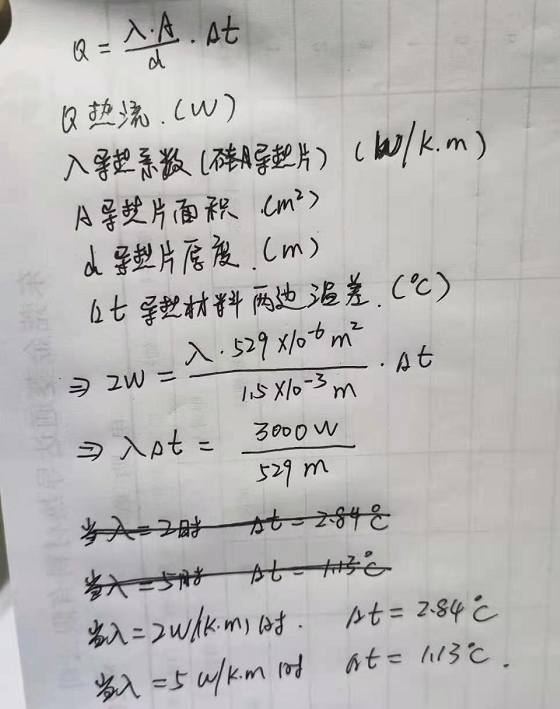 Q = λ·A/d · Δt
Q 热流.(W)
λ 导热系数(硅胶导热片) (W/K.m)
A 导热片面积 (m²)
d 导热片厚度.(m)
Δt 导热材料两边温差.(℃)
⇒ 2W = λ·529×10⁻⁶ m² / 1.5×10⁻³ m · Δt
⇒ λΔt = 3000W / 529 m
当λ=2时 Δt = 2.84℃
当λ=5时 Δt = 1.13℃
当λ=2W/(K.m)时. Δt = 2.84℃
当λ=5 W/K.m时 Δt = 1.13℃.